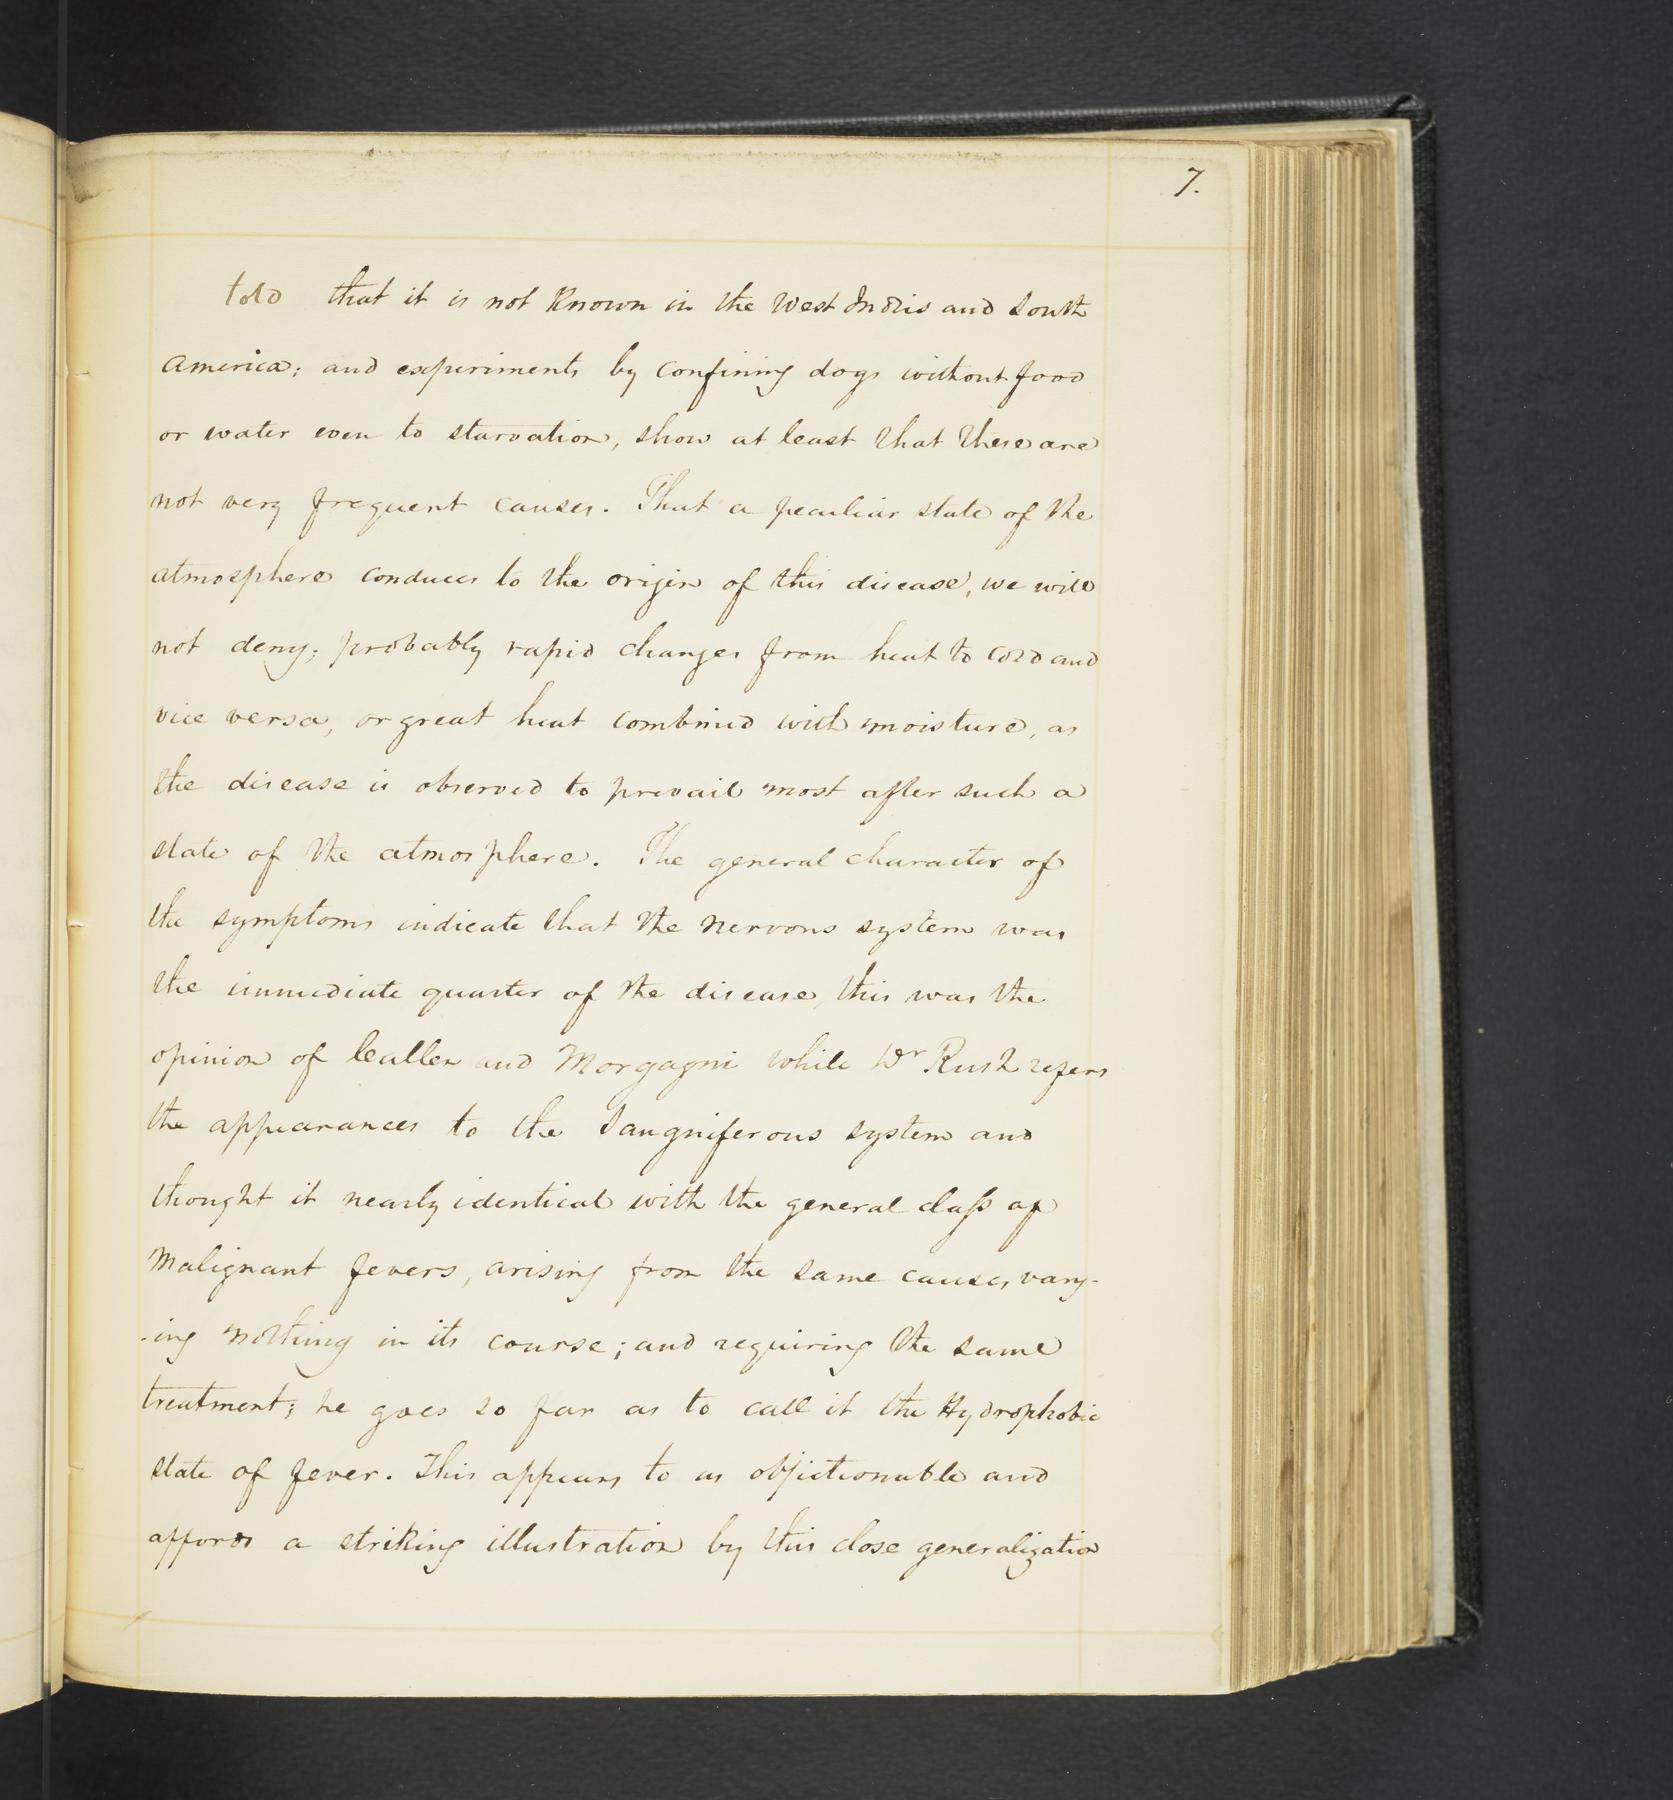 7.
told that it is not Known in the West Indis and South
America; and experiments by confining dogs without food
or water even to starvation, show at least that these are
not very frequent causes. That a peculiar state of the
atmosphere conduces to the origin of this disease, we will
not deny; probably rapid changes from heat to cold and
vice versa, or great heat combined with moisture, as
the disease is observed to prevail most after such a
state of the atmosphere. The general character of
the symptoms indicate that the nervous system was
the immediate quarter of the disease, this was the
opinion of Cullen and Morgagni while Dr Rush refers
the appearances to the Sanguiferous system and
thought it nearly identical with the general class of
Malignant fevers, arising from the same causes, vary-
-ing nothing in its course; and requiring the same
treatment; he goes so far as to call it the Hydrophobic
state of fever. This appears to us objectionable and
affords a striking illustration by this close generalization